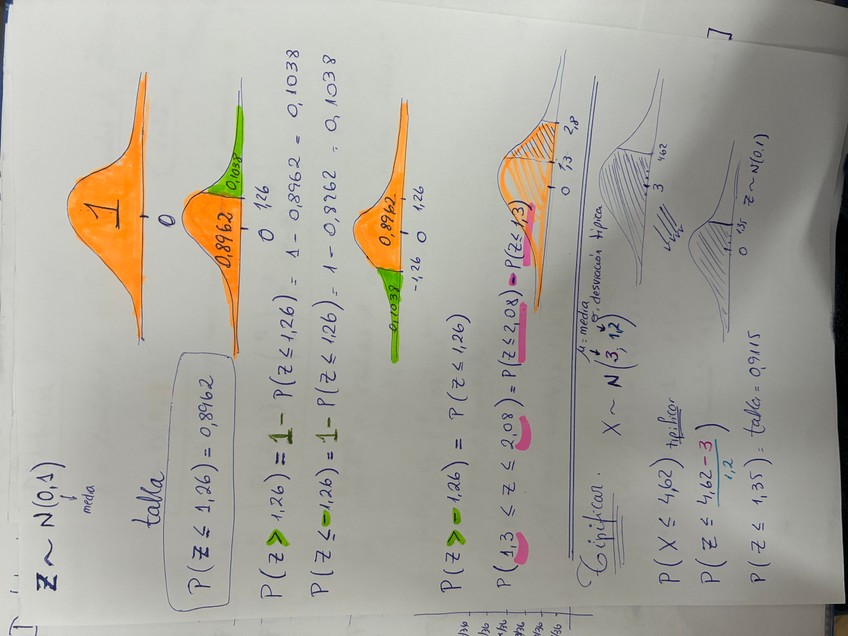 Z ~ N(0,1)
media
1
0
tabla
P(Z ≤ 1,26) = 0,8962
0,8962
0,1038
0
1,26
P(Z > 1,26) = 1 - P(Z ≤ 1,26) = 1 - 0,8962 = 0,1038
P(Z ≤ -1,26) = 1 - P(Z ≤ 1,26) = 1 - 0,8962 = 0,1038
0,1038
0,8962
-1,26
0
1,26
P(Z > -1,26) = P(Z ≤ 1,26)
P(1,3 ≤ Z ≤ 2,08) = P(Z ≤ 2,08) - P(Z ≤ 1,3)
0
1,3
2,8
Tipificar.
X ~ N(3, 1,2)
μ = media
σ: desviación típica
P(X ≤ 4,62) tipificar
3
4,62
P(Z ≤ 4,62-3
1,2
)
P(Z ≤ 1,35) = tabla = 0,9115
0
1,35
Z ~ N(0,1)